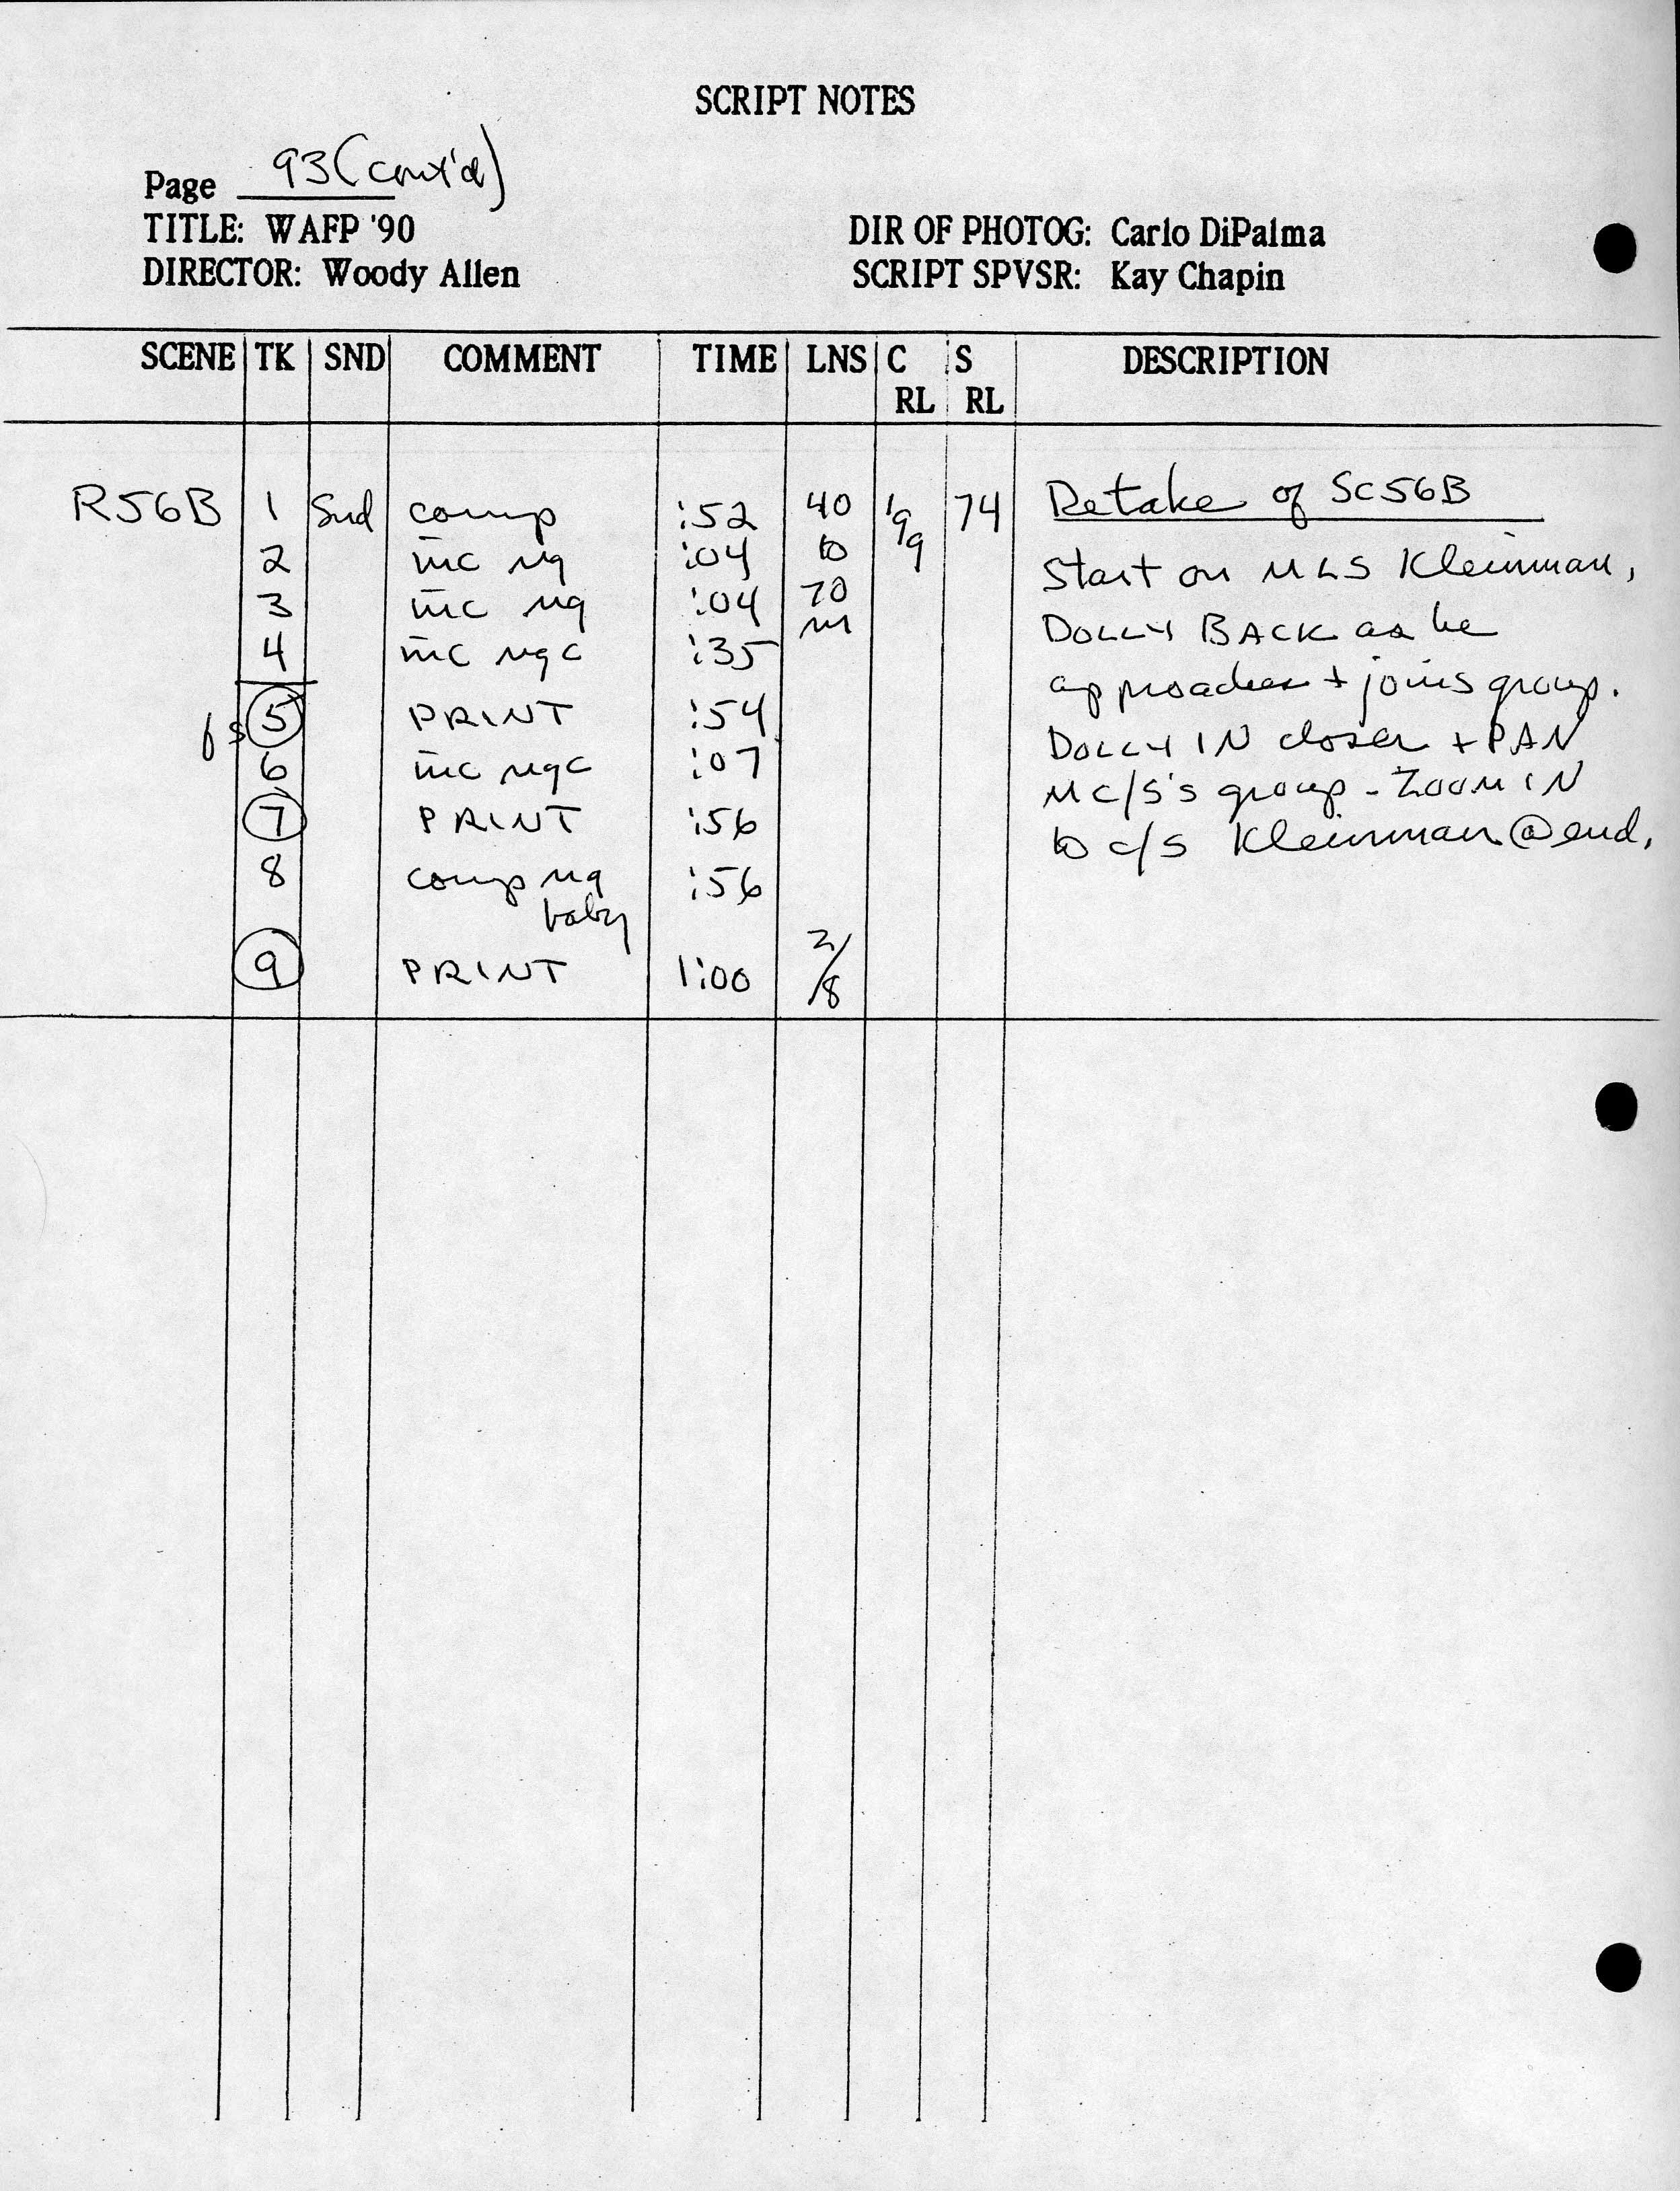 SCRIPT NOTES
Page 93 (cont'd)
TITLE: WAFP '90
DIRECTOR: Woody Allen
DIR OF PHOTOG: Carlo DiPalma
SCRIPT SPVSR: Kay Chapin
SCENE TK SND COMMENT TIME LNS C RL S RL DESCRIPTION
R56B 1 Snd comp :52 40 74 Retake of Sc56B
2 inc ng :04 to Start on MLS Kleinman,
3 inc ng :04 70 DOLLY BACK as he
m
4 inc ngc :35 approaches + joins group.
5 PRINT :54 DOLLY IN closer + PAN
6 inc ngc :07 MC/S's group - ZOOM IN
7 PRINT :56 to c/s Kleinman @ end.
8 comp ng :56
baby
9 PRINT 1:00 2/8